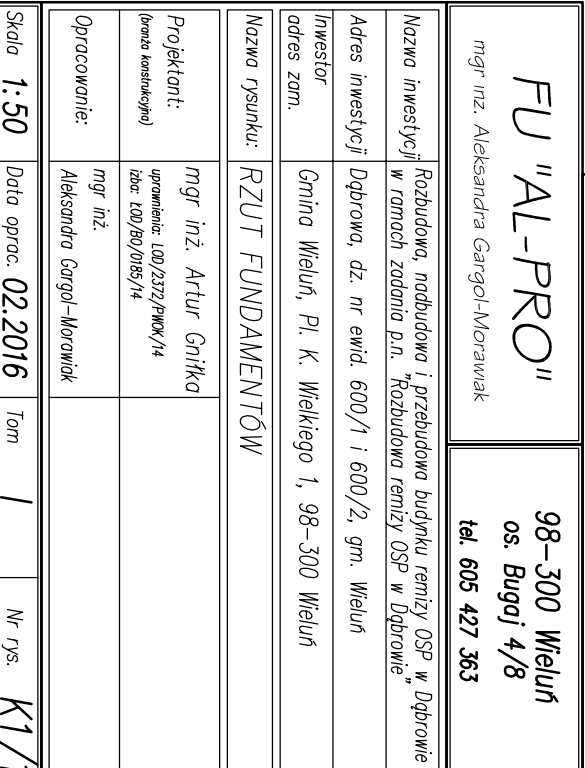 FU "AL-PRO"
mgr inż. Aleksandra Gargol-Morawiak
98-300 Wieluń
os. Bugaj 4/8
tel. 605 427 363
Nazwa inwestycji
Rozbudowa, nadbudowa i przebudowa budynku remizy OSP w Dąbrowie
w ramach zadania p.n. "Rozbudowa remizy OSP w Dąbrowie"
Adres inwestycji
Dąbrowa, dz. nr ewid. 600/1 i 600/2, gm. Wieluń
Inwestor
adres zam.
Gmina Wieluń, Pl. K. Wielkiego 1, 98-300 Wieluń
Nazwa rysunku:
RZUT FUNDAMENTÓW
Projektant:
(branża konstrukcyjna)
mgr inż. Artur Gniłka
uprawnienia: LOD/2372/PWOK/14
izba: ŁOD/BO/0185/14
Opracowanie:
mgr inż.
Aleksandra Gargol-Morawiak
Skala 1:50 Data oprac. 02.2016 Tom I Nr rys. K1/